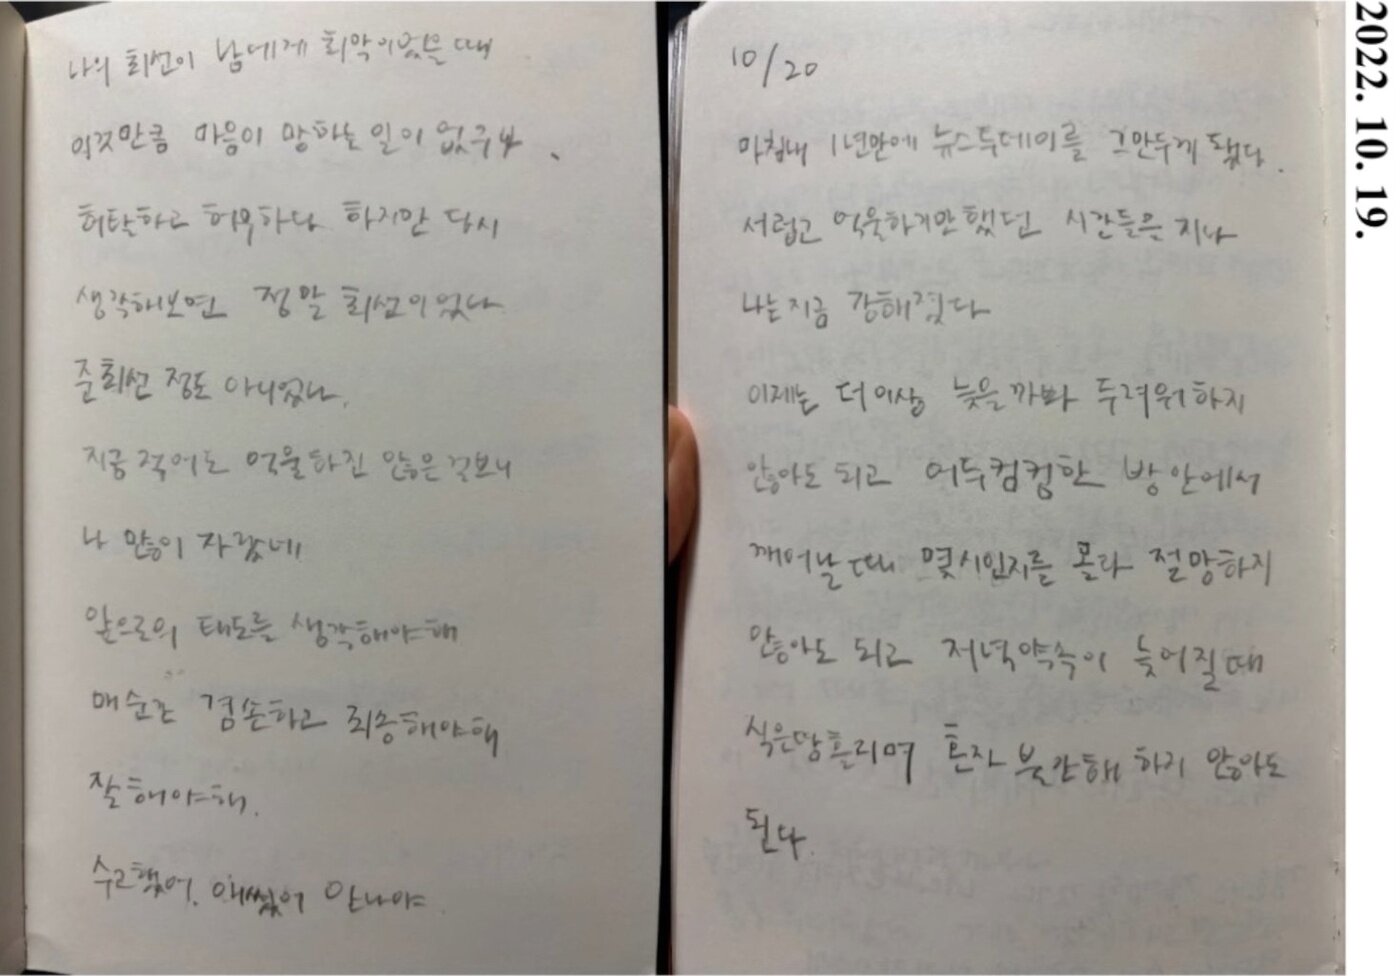 나의 최선이 남에게 최악이었을 때
이것만큼 마음이 망하는 일이 없구나.
허탈하고 허무하다 하지만 다시
생각해보면 정말 최선이었나
준최선 정도 아니었나.
지금 적어도 억울하진 않은 걸보니
나 많이 자랐네
앞으로의 태도를 생각해야해
매순간 겸손하고 죄송해야해
잘해야해.
수고했어. 애썼어 안나야
10/20
마침내 1년만에 뉴스투데이를 그만두게 됐다.
서럽고 억울하기만했던 시간들은 지나
나는지금 강해졌다
이제는 더이상 늦을까봐 두려워하지
않아도 되고 어두컴컴한 방안에서
깨어날때 몇시인지를 몰라 절망하지
않아도 되고 저녁약속이 늦어질때
식은땀흘리며 혼자 불안해 하지 않아도
된다.
2022. 10. 19.